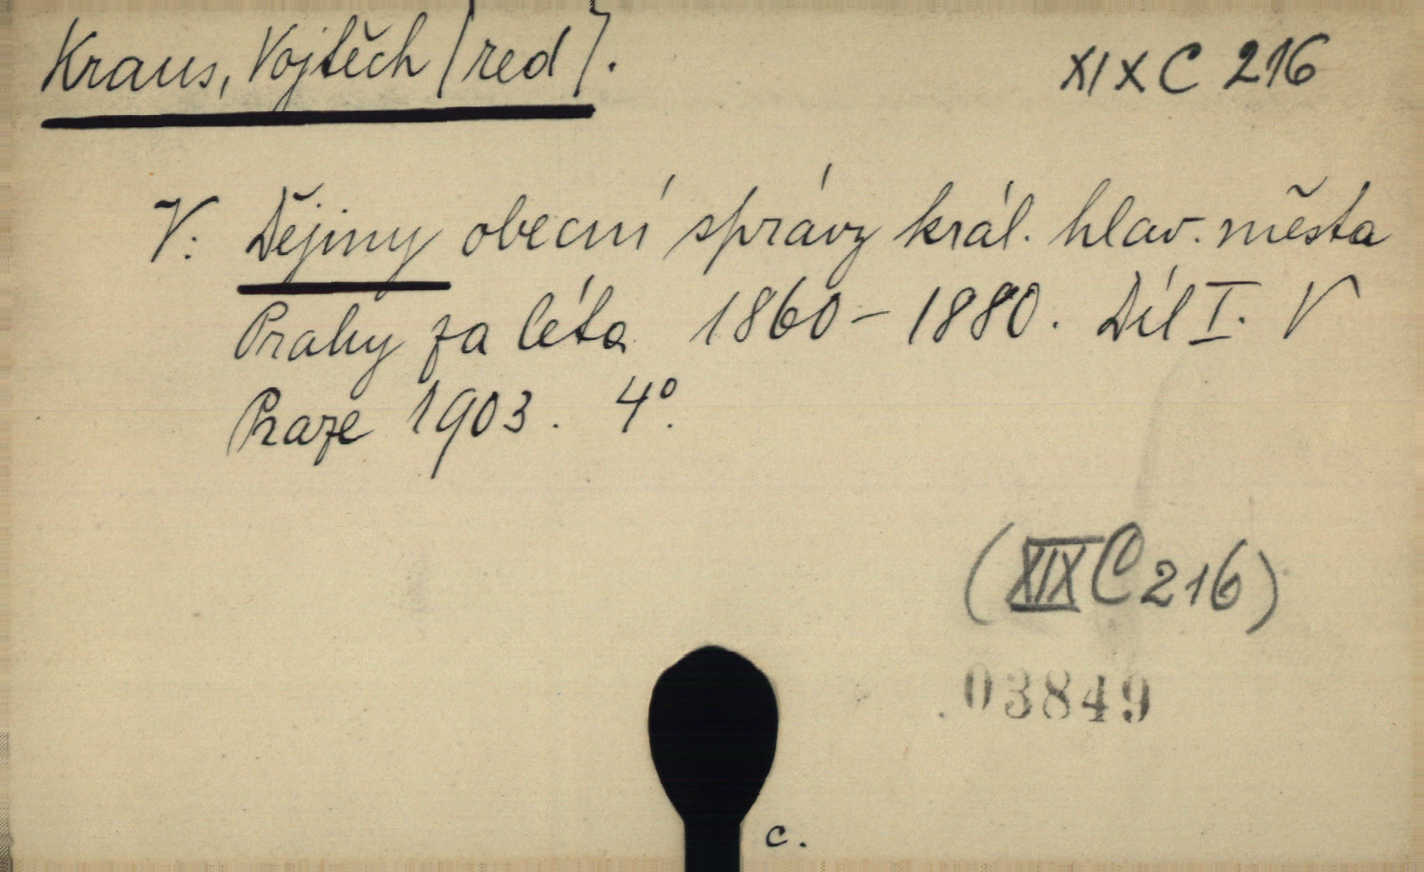 Kraus, Vojtěch (red). XIX C 216
V: Dějiny obecní správy král. hlav. města
Prahy za léta 1860-1880. Díl I. V
Praze 1903. 4°.
(XIX C 216)
03849
c.